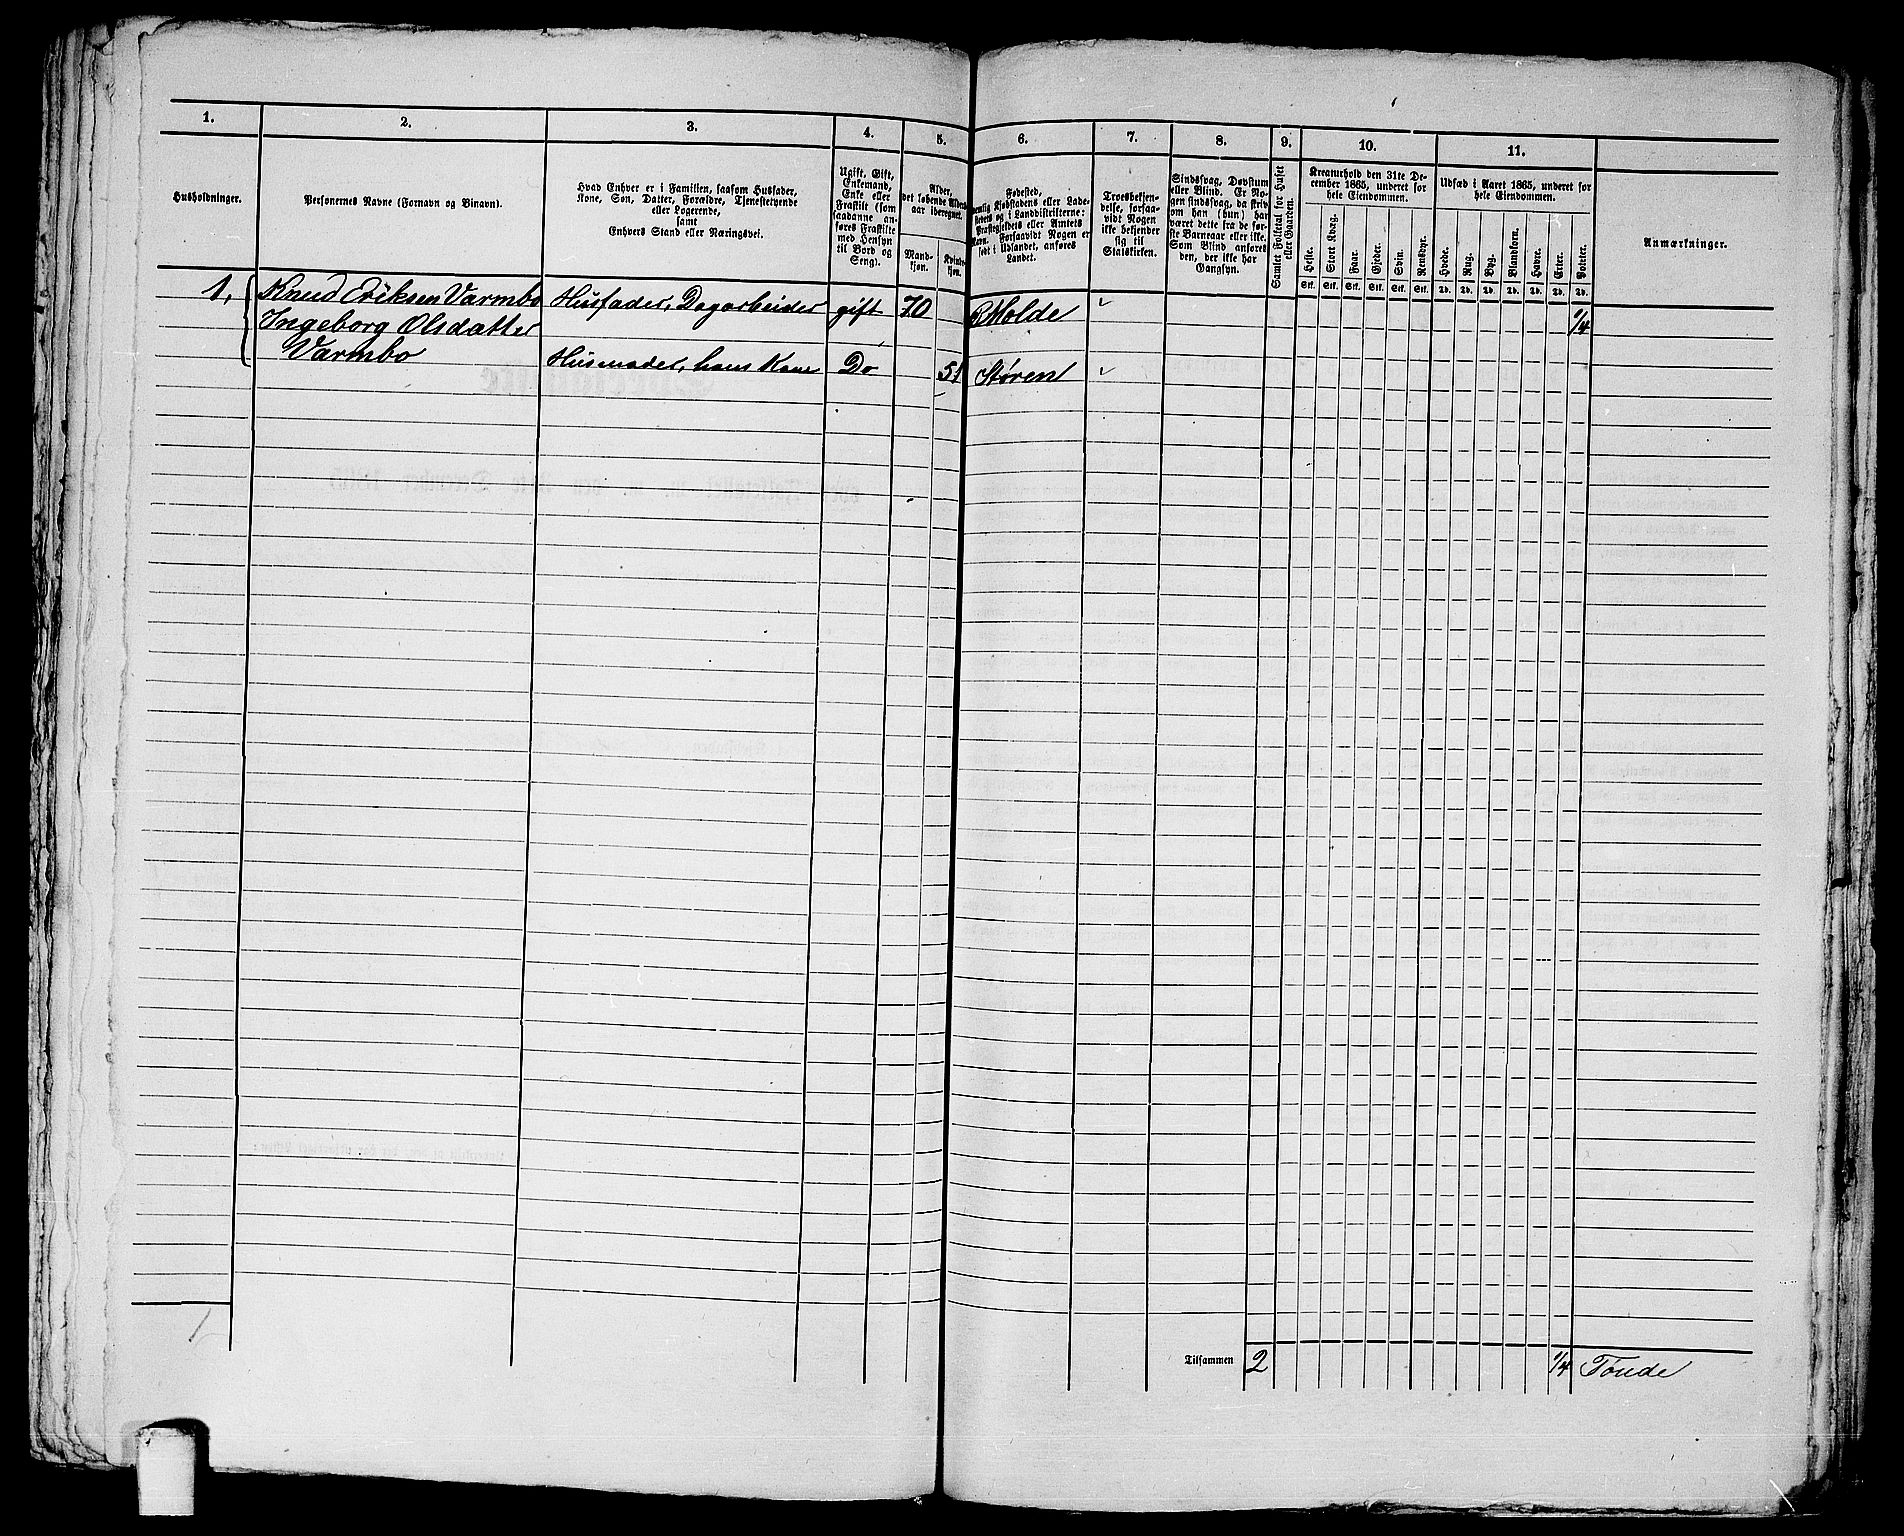 1. 2. 3. 4. 5. 6. 7. 8. 9. 10. 11.
Husholdninger.
Personernes Navne (Fornavn og Binavn).
Hvad Enhver er i Familien, saasom Husfader,
Kone, Søn, Datter, Forældre, Tjenestetyende
eller Logerende,
samt
Enhvers Stand eller Næringsvei.
Ugift, Gift,
Enkemand,
Enke eller
Fraskilt (som
saadanne an-
føres Fraskilte
med Hensyn
til Bord og
Seng).
Alder,
det løbende Alders-
aar iberegnet.
Mand-
kjøn.
Kvinde-
kjøn.
Fødested,
nemlig Kjøbstadens eller Lade-
stedets og i Landdistrikterne:
Præstegjeldets eller Amtets
Navn. Forsaavidt Nogen er
født i Udlandet, anføres
Landet.
Troesbekjen-
delse, forsaa-
vidt Nogen
ikke bekjender
sig til
Statskirken.
Sindssvag, Døvstum
eller Blind. Er No-
gen sindssvag, da skriv
om han (hun) har
været dette fra de før-
ste Barneaar eller ikke.
Som Blind anføres
den, der ikke har
Gangsyn.
Samlet Folketal for Huset
eller Gaarden.
Kreaturhold den 31te De-
cember 1865, underet for
hele Eiendommen.
Heste. Stort Kvæg. Faar. Gjeder. Svin. Rensdyr.
Stk. Stk. Stk. Stk. Stk. Stk.
Udsæd i Aaret 1865, underet for
hele Eiendommen.
Hvede. Rug. Byg. Blandkorn. Havre. Erter. Poteter.
Td. Td. Td. Td. Td. Td. Td.
Anmærkninger.
1, Knud Eriksen Varmbo Husfader, Dagarbeider gift 70 Molde 1/4
Ingeborg Olsdatter
Varmbo Husmoder, hans Kone Do 51 Støren
1
Tilsammen 2 1/4 Tønde